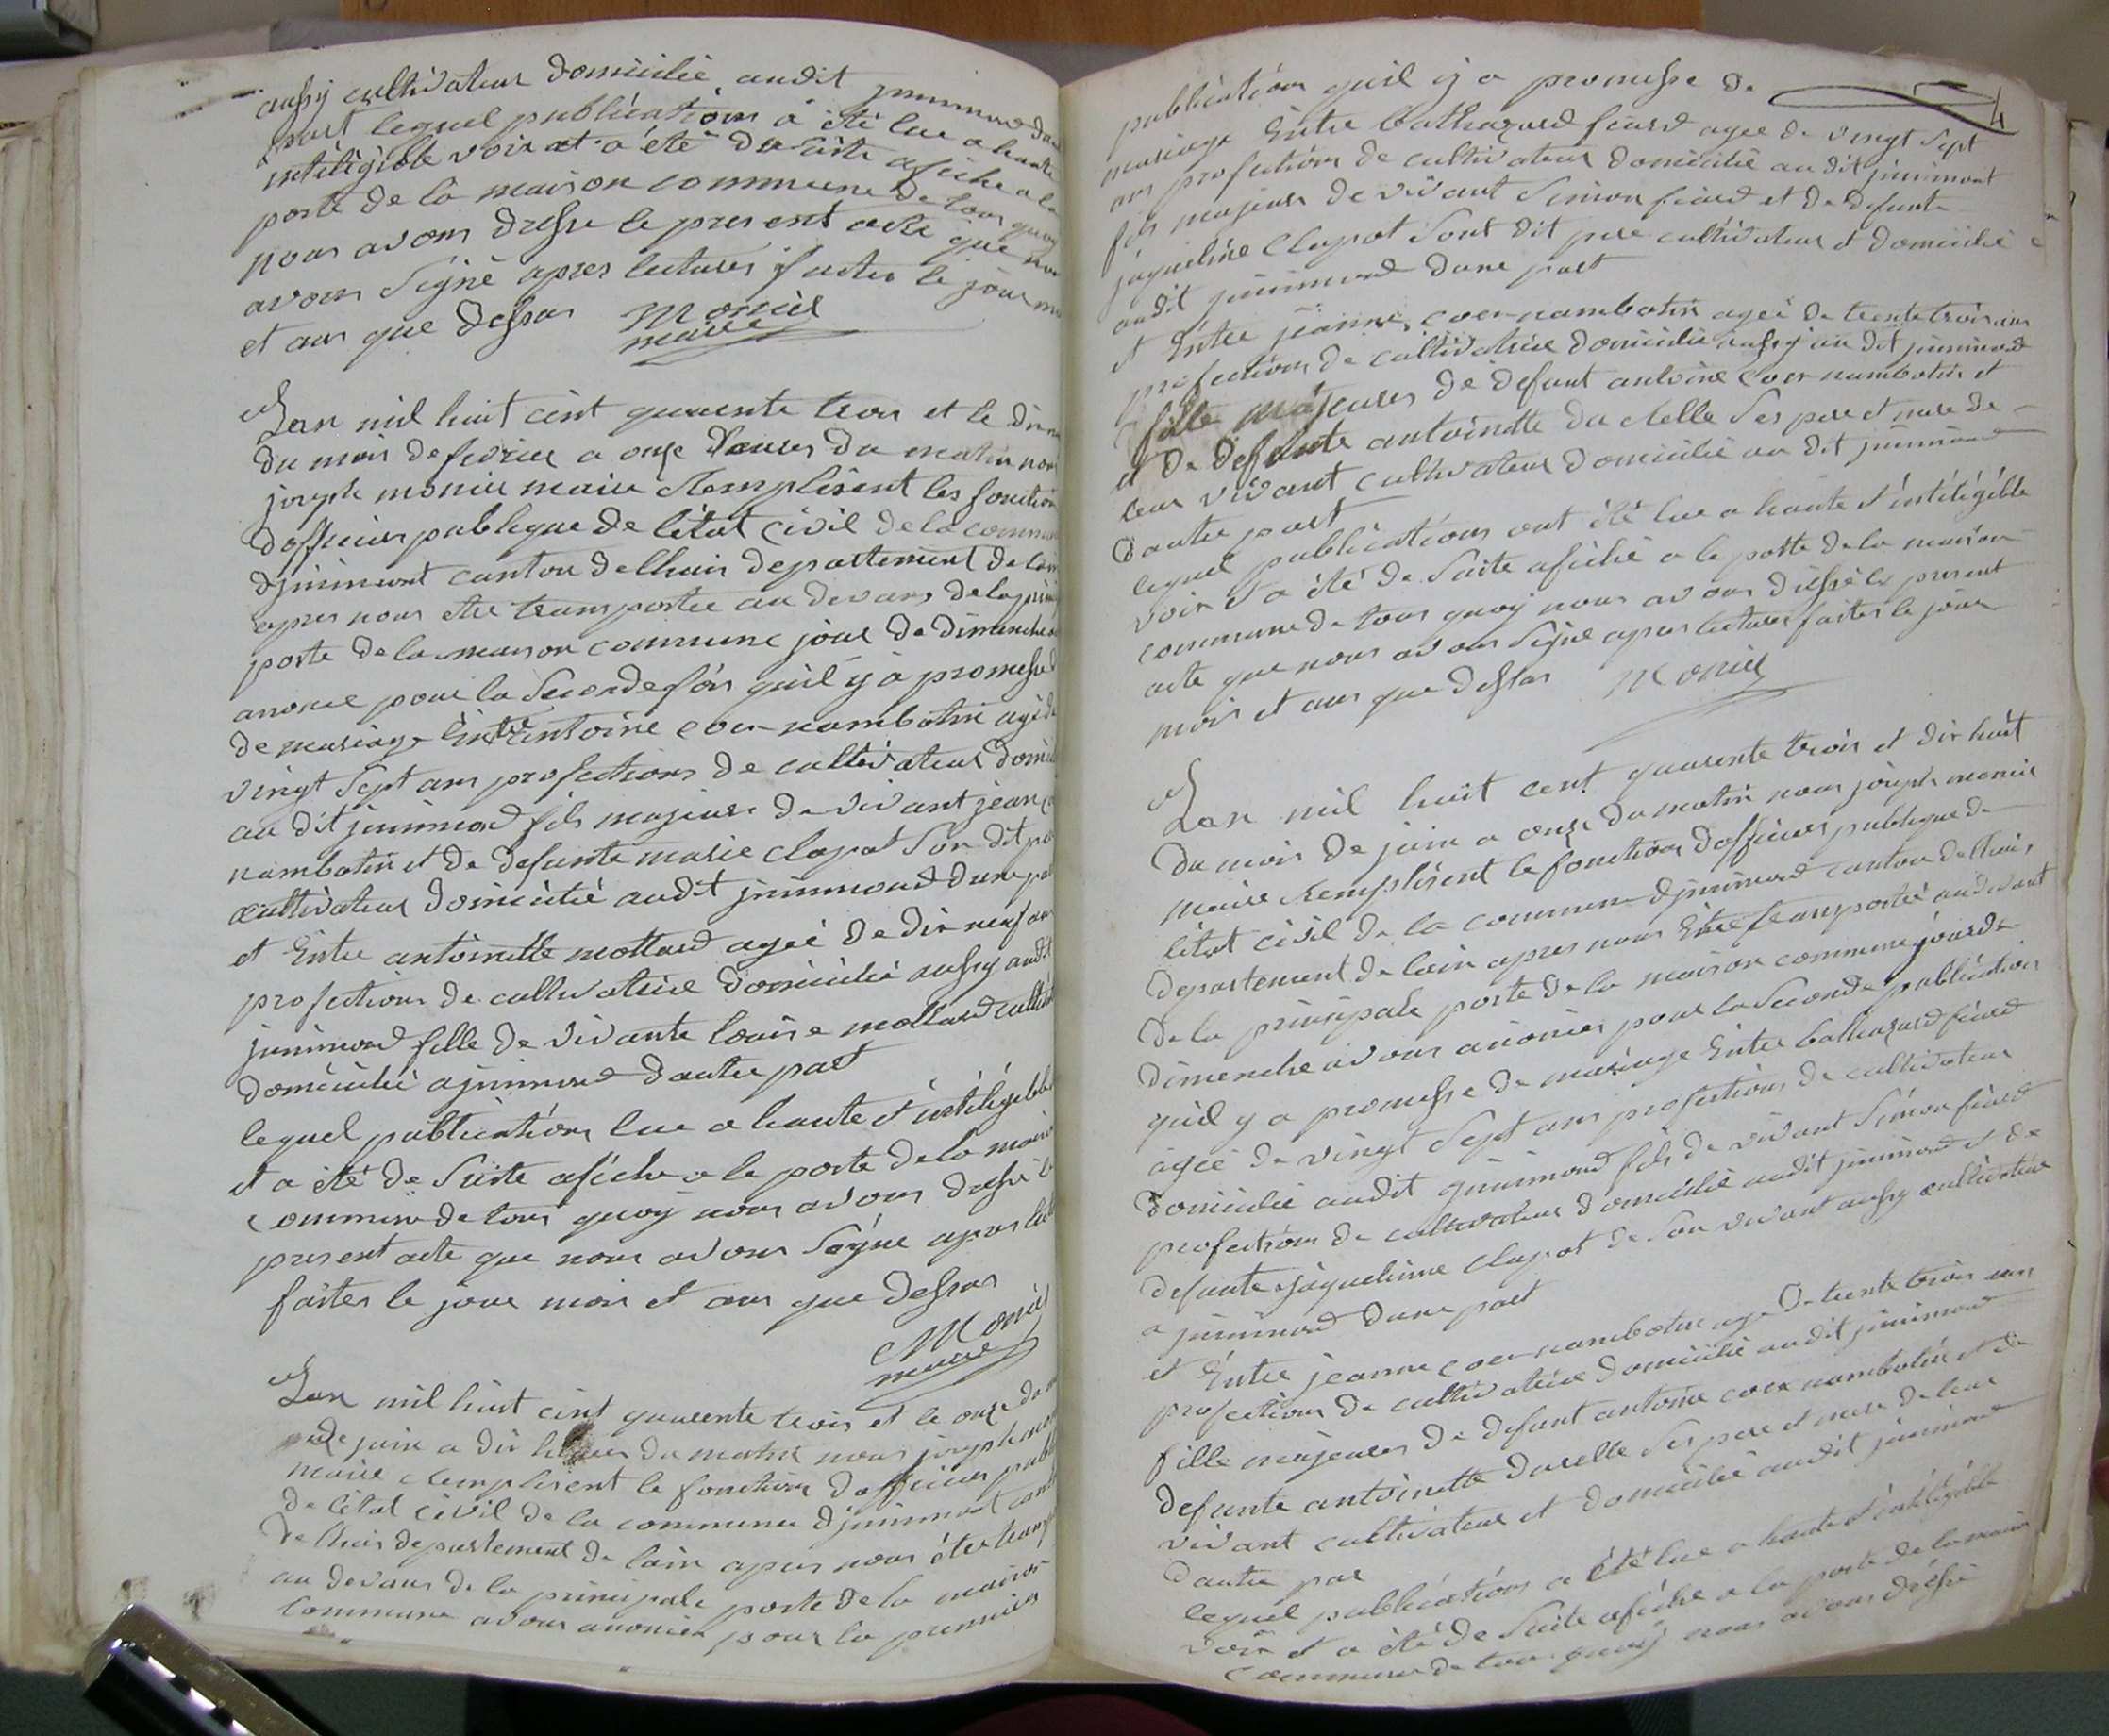 aussy cultivateur domicilié audit jninmond
part lequel publication a été lue a haute
intéligible voix et a été de suite afiche a la
porte de la maison commune de tous quoy
nous avons dresse le present acte que nous
avons signé apres lectures faites le jour
et ans que dessus Moniel
maire
Lan mil huit cent quarente trois et le
du mois de fevrier a onze heures du matin nous
joseph moniel maire Remplisent les fonction
dofficier publique de létat Civil de la
djninmont canton de lhuis departement de
apres nous etre transportée au devans de la
porte de la maison commune jour de dimenche
anonce pour la Seconde fois quil y à promesse
de mariage Entre antoine coer-nambotin agé de
vingt Sept ans profections de cultivateur
au dit jninmond fils majeure de vivant jean
nambotin et de defunte marie clapot Son dit
cultivateur domicilié audit jninmond dune
et Entre antoinette mottard agéé de dix neuf ans
profections de cultivatrice domicilié aussy audit
jninmond fille de vivante louise mottard
domicilié a jninmond dautre part
lequel publications lue a haute et intéligible
et a été de Suite afiche a la porte de la
commune de tous quoy nous avons dressé le
present acte que nous avons Signe apres
faites le jour mois et ans que dessus
Moniel
maire
Lan mil huit cent quarente trois et le onze du
de juin a dix heures du matin nous joseph
maire Remplisent le fonction dofficier
de létat civil de la commune djninmont
de lhuis departement de lain apres nous être
au devans de la principale porte de la maison
commune avons anoncer pour la premier
publication quil y a promesse de 4
mariage Entre balthazard ficard agee de vingt Sept
ans profections de cultivateur domicilié au dit jninmont
fils majeur de vivant Simon ficard et de defunte
jaqueline Clapot Sont dit pere cultivateur et domicilié
audit jninmond dune part
et Entre jeanne coer-nambotin agéé de trente trois ans
profections de cultivatrice domicilié aussy au dit jninmond
fille majeures de defunt antoine coer nambotin et
et de defunte antoinette Ses pere et mere de
leur vivant cultivateur domicilié au dit jninmond
dautre part
lequel publications ont été lue a haute et intéligible
voix et a été de Suite afiché a la porte de la maison
commune de tous quoy nous avons dressé le present
acte que nous avons Signe apres lectures faites le jour
mois et ans que dessus Moniel
Lan mil huit cent quarente trois et dix huit
du mois de juin a onze du matin nous joseph moniel
maire Remplisent le fonction dofficier publique de
létat civil de la commune djninmond canton de lhuis
departement de lain apres nous Etre transportée au devant
de la principale porte de la maison commune jour de
dimenche avons anoncer pour la Seconde publication
quil y a promesse de mariage Entre balthazard ficard
agéé de vingt Sept ans profections de cultivateur
domicilié audit jninmond fils de vivant Simon ficard
profections de cultivateur domicilié audit jninmond et de
defunte jaquelinne Clapot de Son vivant aussy cultivatrice
a jninmond dune part
et Entre jeanne coer-nambotin age de trente trois ans
profections de cultivatrice domicilié audit jninmond
fille majeures de defunt antoine coer nambotin et de
defunte antoinette Ses pere et mere de leur
vivant cultivateur et domicilié audit jninmond
dautre par
lequel publications a été lue a haute et intéligible
voix et a été de Suite afiche a la porte de la
commune de tous quoy nous avons dréssé